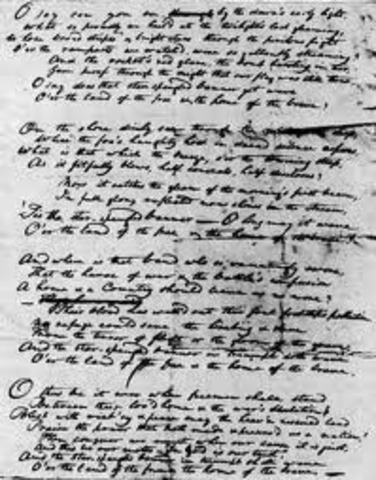 O say can you see by the dawn's early light,
What so proudly we hail'd at the twilight's last gleaming,
Whose broad stripes & bright stars through the perilous fight
O'er the ramparts we watch'd, were so gallantly streaming?
And the rocket's red glare, the bomb bursting in air,
Gave proof through the night that our flag was still there,
O say does that star-spangled banner yet wave
O'er the land of the free & the home of the brave?
On the shore dimly seen through the mists of the deep,
Where the foe's haughty host in dread silence reposes,
What is that which the breeze, o'er the towering steep,
As it fitfully blows, half conceals, half discloses?
Now it catches the gleam of the morning's first beam,
In full glory reflected now shines in the stream,
'Tis the star-spangled banner — O long may it wave
O'er the land of the free & the home of the brave!
And where is that band who so vauntingly swore,
That the havoc of war & the battle's confusion
A home & a Country should leave us no more?
Their blood has wash'd out their foul footsteps pollution.
No refuge could save the hireling & slave
From the terror of flight or the gloom of the grave,
And the star-spangled banner in triumph doth wave
O'er the land of the free & the home of the brave.
O thus be it ever when freemen shall stand
Between their lov'd home & the war's desolation!
Blest with vict'ry & peace may the heav'n rescued land
Praise the power that hath made & preserv'd us a nation!
Then conquer we must, when our cause it is just,
And this be our motto — "In God is our trust,"
And the star-spangled banner in triumph shall wave
O'er the land of the free & the home of the brave.